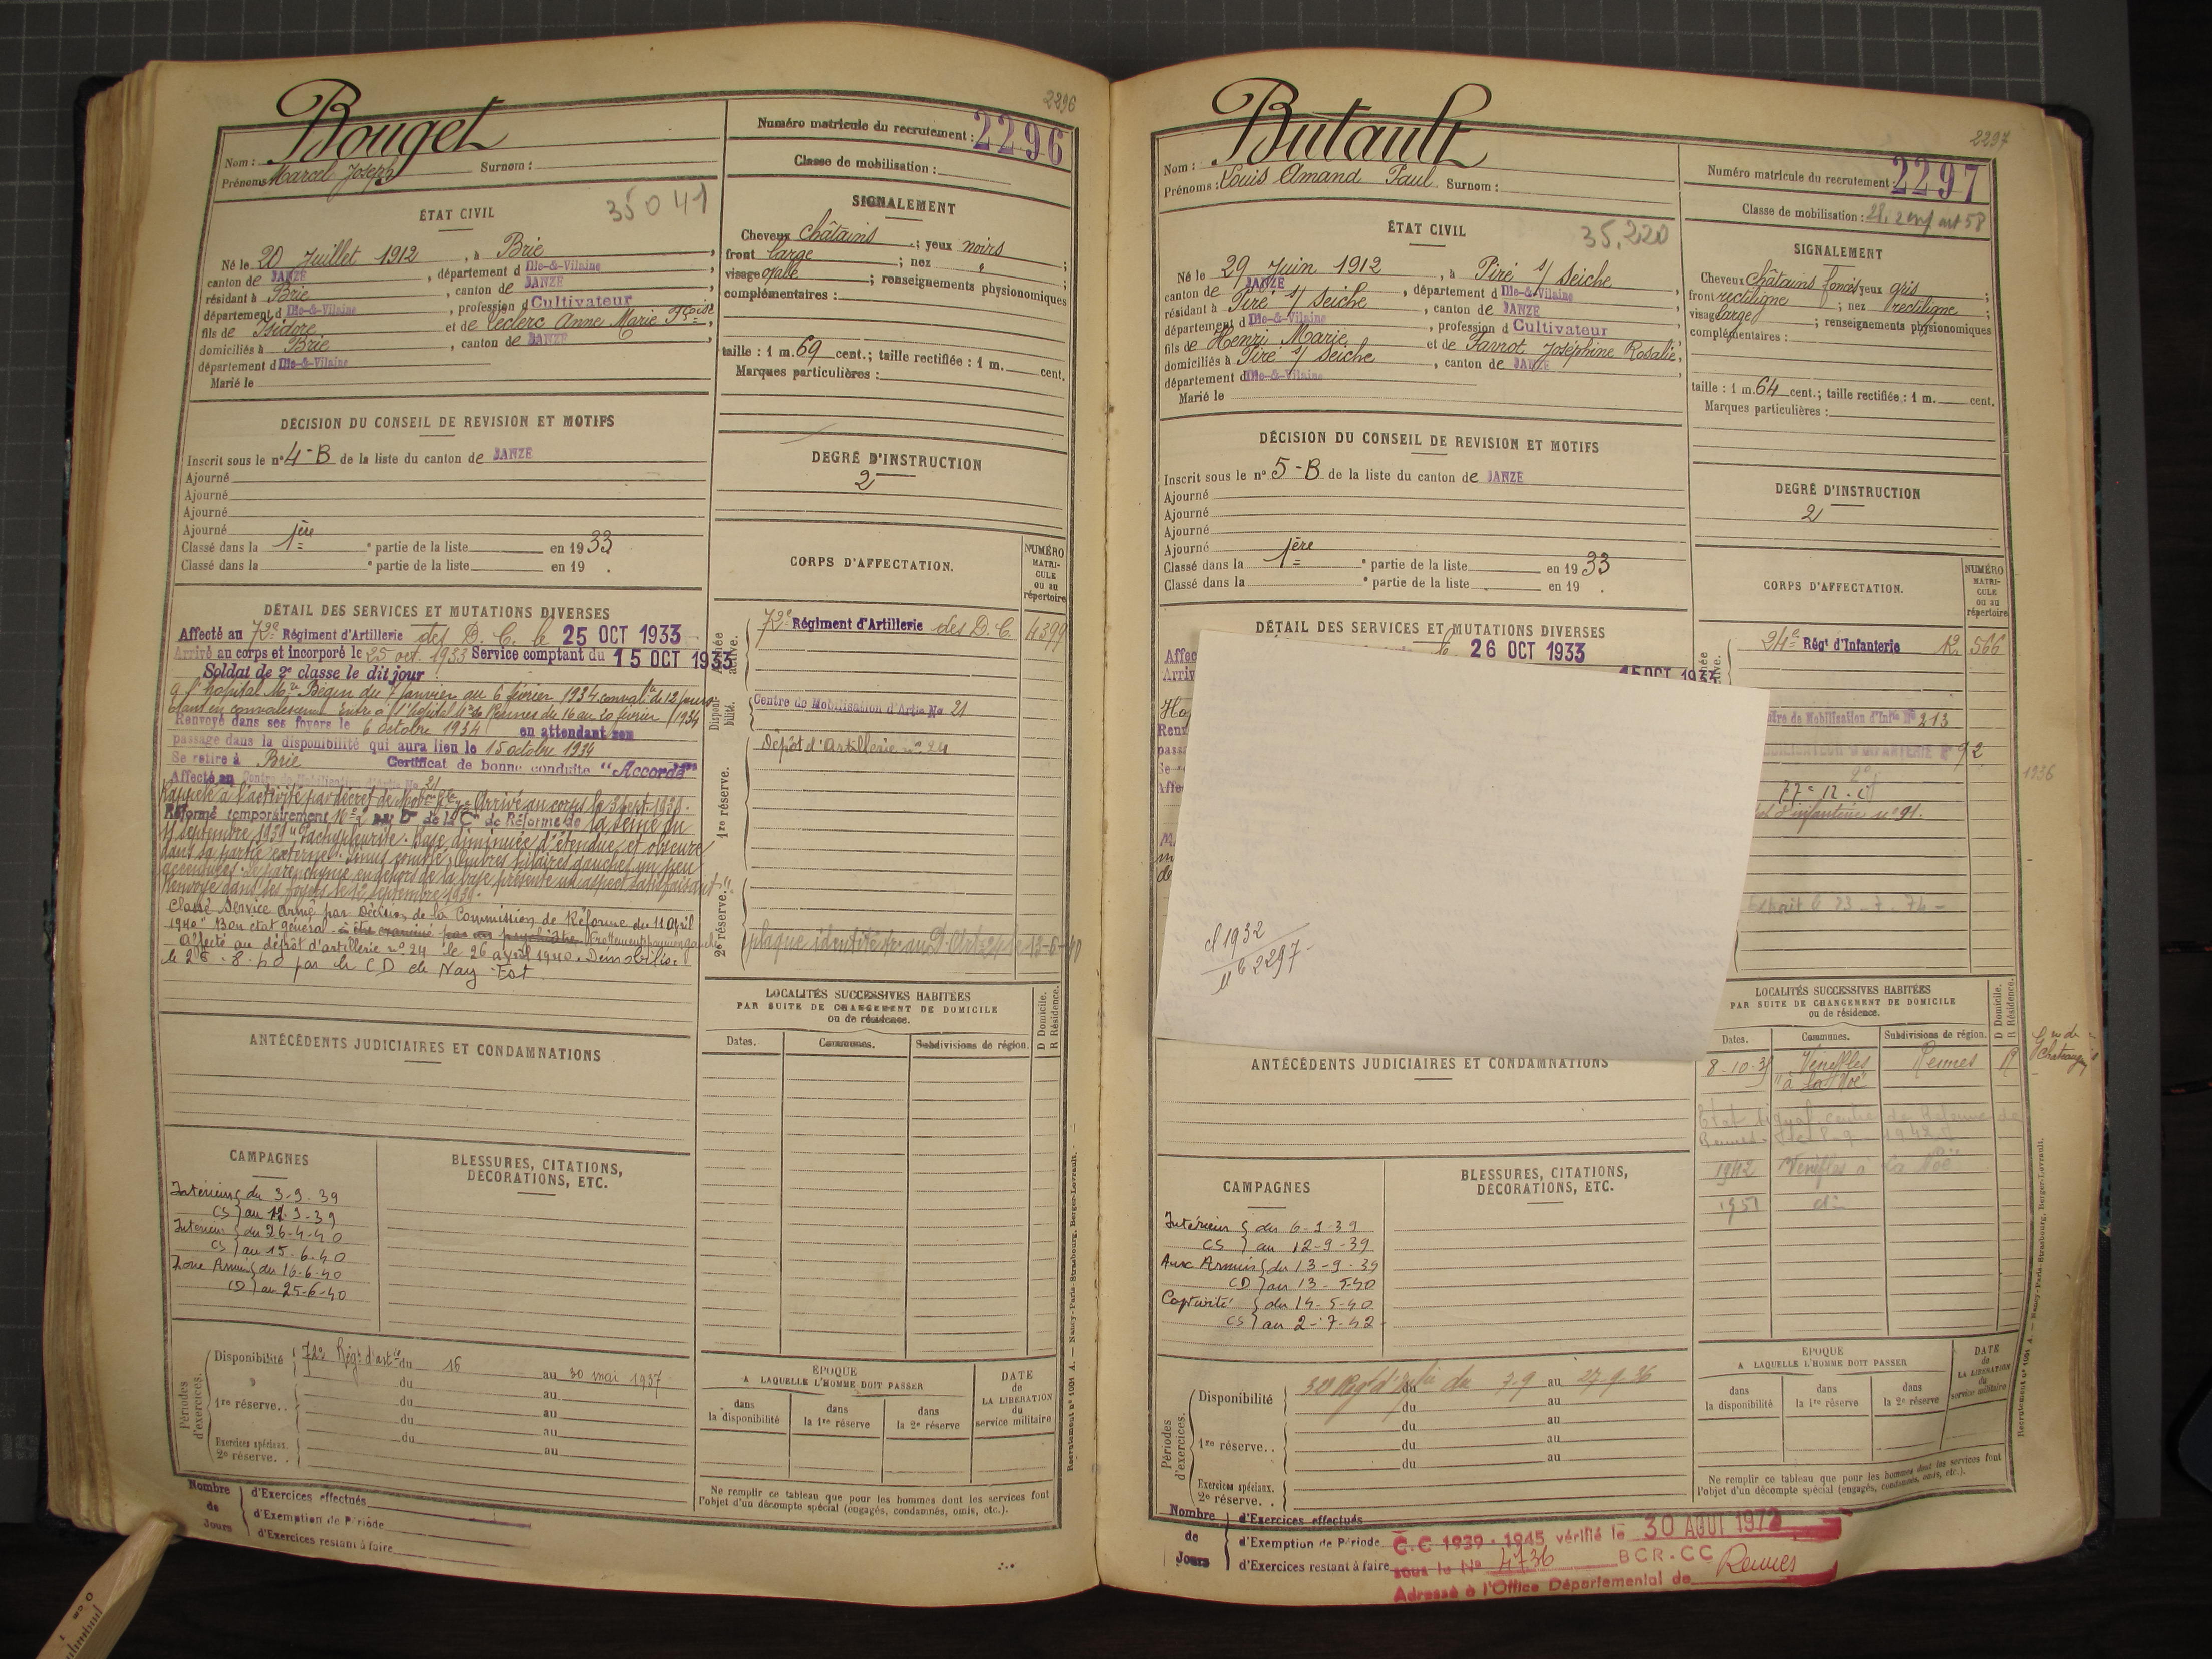 2296
Bouget
Nom :
Prénoms Marcel Joseph Surnom :
Numéro matricule du recrutement : 2296
Classe de mobilisation :
ÉTAT CIVIL
35041
Né le 20 Juillet 1912, à Brie,
canton de JANZÉ, département d Ille-&-Vilaine,
résidant à Brie, canton de JANZÉ,
département d Ille-&-Vilaine, profession d Cultivateur
fils de Isidore et de Leclerc Anne Marie Fçoise,
domiciliés à Brie, canton de JANZÉ,
département d Ille-&-Vilaine
Marié le
SIGNALEMENT
Cheveux châtains ; yeux noirs
front large ; nez ;
visage ovale ; renseignements physionomiques
complémentaires :
taille : 1 m. 69 cent.; taille rectifiée : 1 m. cent.
Marques particulières :
DÉCISION DU CONSEIL DE REVISION ET MOTIFS
Inscrit sous le n° 4-B de la liste du canton de JANZÉ
Ajourné
Ajourné
Ajourné
Ajourné
Classé dans la 1ère partie de la liste en 1933
Classé dans la partie de la liste en 19 .
DEGRÉ D'INSTRUCTION
2
DÉTAIL DES SERVICES ET MUTATIONS DIVERSES
Affecté au 72e Régiment d'Artillerie des D. C. le 25 OCT 1933
Arrivé au corps et incorporé le 25 oct. 1933 Service comptant du 15 OCT 1933
Soldat de 2e classe le dit jour
a l'hopital Mre Bégin du 7 Janvier au 6 février 1934 conval. de 12 jours
étant en convalescence Entré à l'hôpital Mre de Rennes du 16 au 20 février 1934
Renvoyé dans ses foyers le 6 octobre 1934 en attendant son
passage dans la disponibilité qui aura lieu le 15 octobre 1934
Se retire à Brie Certificat de bonne conduite "Accordé"
Affecté au Centre de Mobilisation d'Artie No 21
Rappelé à l'activité par décret de Mobon Gle Arrivé au corps le 3 sept. 1939.
Réformé temporairement No 2 de la Con de Réforme de la Seine du
11 septembre 1939 "Pachypleurite. Base diminuée d'étendue et obscure
dans sa partie externe. Sinus comblé. Ombres hilaires gauches un peu
accentuées. Le parenchyme en dehors de la base présente un aspect satisfaisant".
Renvoyé dans ses foyers le 12 septembre 1939.
Classé Service Armé par Décision de la Commission de Réforme du 11 Avril
1940 "Bon état général à être examiné par un psychiatre
Affecté au dépôt d'artillerie no 24 le 26 avril 1940. Démobilisé
le 25-8-40 par le CD de Nay Est
CORPS D'AFFECTATION.
NUMÉRO MATRICULE ou au répertoire
Armée active.
72e Régiment d'Artillerie des D. C. 4399
Disponibilité.
Centre de Mobilisation d'Artie No 21
1re réserve.
Dépôt d'Artillerie no 24
2e réserve.
plaque identité fr. au D. Art. 24 le 13-6-40
ANTÉCÉDENTS JUDICIAIRES ET CONDAMNATIONS
LOCALITÉS SUCCESSIVES HABITÉES
PAR SUITE DE CHANGEMENT DE DOMICILE
ou de résidence.
Dates. Communes. Subdivisions de région. D Domicile. R Résidence.
CAMPAGNES
Intérieur du 3-9-39
CS au 12-9-39
Intérieur du 26-4-40
CS au 15-6-40
Zone Armées du 16-6-40
CD au 25-6-40
BLESSURES, CITATIONS,
DÉCORATIONS, ETC.
Périodes d'exercices.
Disponibilité 72e Régt d'artie du 16 au 30 mai 1937
» du au
1re réserve. . du au
du au
Exercices spéciaux. du au
2e réserve. . au
ÉPOQUE
A LAQUELLE L'HOMME DOIT PASSER
dans la disponibilité
dans la 1re réserve
dans la 2e réserve
DATE de LA LIBÉRATION du service militaire
Ne remplir ce tableau que pour les hommes dont les services font
l'objet d'un décompte spécial (engagés, condamnés, omis, etc.).
Nombre de Jours
d'Exercices effectués
d'Exemption de Période
d'Exercices restant à faire
Recrutement n° 1001 A. — Nancy-Paris-Strasbourg, Berger-Levrault. —
2297
Butault
Nom :
Prénoms : Louis Amand Paul Surnom :
Numéro matricule du recrutement : 2297
Classe de mobilisation : 28, 2 enf art 58
ÉTAT CIVIL
35.220
Né le 29 Juin 1912, à Piré s/ Seiche
canton de JANZÉ, département d Ille-&-Vilaine,
résidant à Piré s/ Seiche, canton de JANZÉ,
département d Ille-&-Vilaine, profession d Cultivateur
fils de Henri Marie et de Parnot Joséphine Rosalie,
domiciliés à Piré s/ Seiche, canton de JANZÉ,
département d Ille-&-Vilaine
Marié le
SIGNALEMENT
Cheveux châtains foncés yeux gris
front rectiligne ; nez rectiligne ;
visage large ; renseignements physionomiques
complémentaires :
taille : 1 m. 64 cent.; taille rectifiée : 1 m. cent.
Marques particulières :
DÉCISION DU CONSEIL DE REVISION ET MOTIFS
Inscrit sous le n° 5-B de la liste du canton de JANZÉ
Ajourné
Ajourné
Ajourné
Ajourné
Classé dans la 1ère partie de la liste en 1933
Classé dans la partie de la liste en 19 .
DEGRÉ D'INSTRUCTION
2
DÉTAIL DES SERVICES ET MUTATIONS DIVERSES
Affec le 26 OCT 1933
Arriv 15 OCT 1933
cl 1932
No 2297
CORPS D'AFFECTATION.
NUMÉRO MATRICULE ou au répertoire
24e Régt d'Infanterie 566
tre de Mobilisation d'Infie No 213
MOBILISATEUR D'INFANTERIE No 92
1936
d'infanterie no 91.
Extrait le 23-7-74-
ANTÉCÉDENTS JUDICIAIRES ET CONDAMNATIONS
LOCALITÉS SUCCESSIVES HABITÉES
PAR SUITE DE CHANGEMENT DE DOMICILE
ou de résidence.
Dates. Communes. Subdivisions de région. D Domicile. R Résidence.
8-10-35 Venèfles Rennes R
"à la Noë"
1942 Venèfles à la Noë
1951 do
CAMPAGNES
Intérieur du 6-9-39
CS au 12-9-39
Aux Armées du 13-9-39
CD au 13-5-40
Captivité du 14-5-40
CS au 2-7-42
BLESSURES, CITATIONS,
DÉCORATIONS, ETC.
Périodes d'exercices.
Disponibilité du 7-9 au 27-9-36
du au
du au
1re réserve. . du au
du au
Exercices spéciaux.
2e réserve. .
ÉPOQUE
A LAQUELLE L'HOMME DOIT PASSER
dans la disponibilité
dans la 1re réserve
dans la 2e réserve
DATE de LA LIBÉRATION du service militaire
Ne remplir ce tableau que pour les hommes dont les services font
l'objet d'un décompte spécial (engagés, condamnés, omis, etc.).
Nombre de Jours
d'Exercices effectués
d'Exemption de Période
d'Exercices restant à faire
C.C 1939-1945 vérifié le 30 AOUT 1972
sous le No 4736 BCR-CC Rennes
Adressé à l'Office Départemental de
Recrutement n° 1001 A. — Nancy-Paris-Strasbourg, Berger-Levrault.